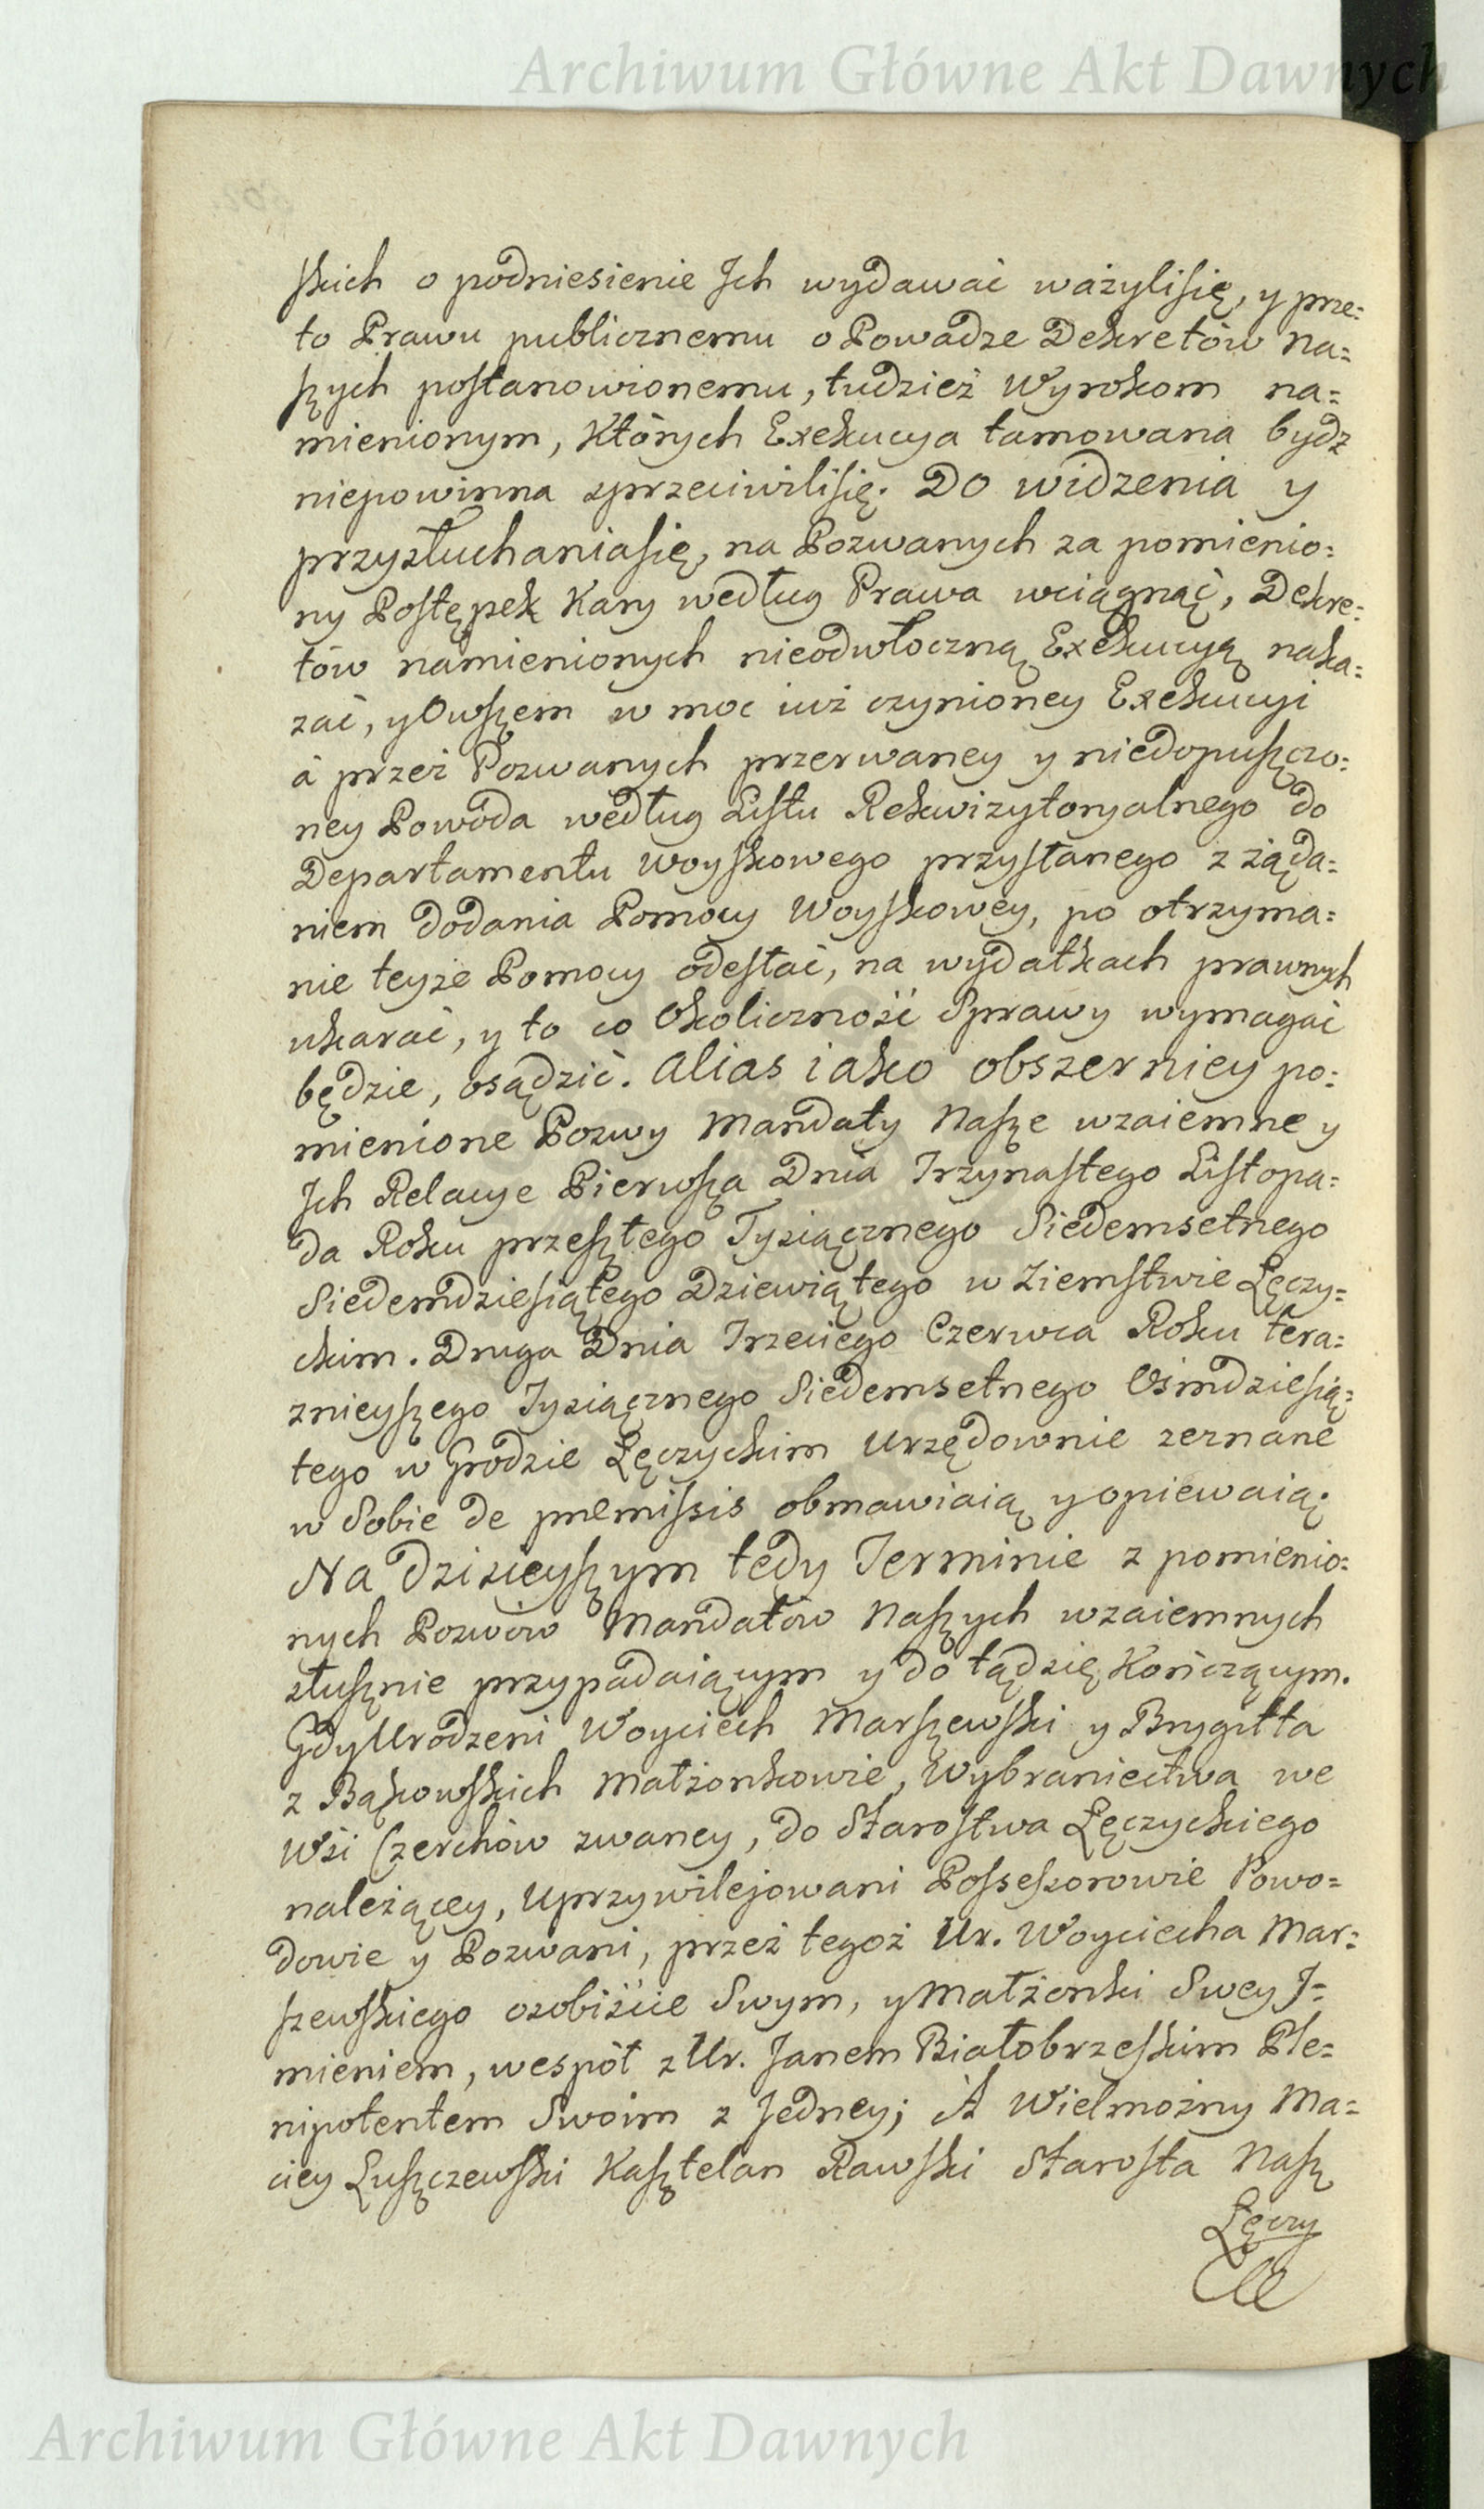 Archiwum Główne Akt Dawnych
skich o podniesienie Ich wydawać ważylisię, y prze=
to Prawu publicznemu o Powadze Dekretów Na=
szych postanowionemu, tudzież Wyrokom na=
mienionym, Których Exekucya tamowana bydz
niepowinna sprzeciwilisię. Do widzenia y
przysłuchaniasię, na Pozwanych za pomienio=
ny Postępek Kary według Prawa wciągnąć, Dekre=
tów namienionych nieodwłoczną Exekucyą naka=
zać, y Owszem w moc iuż czynioney Exekucyi
á przez Pozwanych przerwaney y niedopuszczo=
ney Powoda według Listu Rekwizytoryalnego do
Departamentu Woyskowego przysłanego z żąda=
niem dodania Pomocy Woyskowey, po otrzyma=
nie teyże Pomocy odesłać, na wydatkach prawnych
ukarać, y to co Okoliczność Sprawy wymagać
będzie, osądzić. Alias iako obszerniey po=
mienione Pozwy Mandaty Nasze wzaiemne y
Ich Relacye Pierwsza Dnia Trzynastego Listopa=
da Roku przeszłego Tysiącznego Siedemsetnego
Siedemdziesiątego Dziewiątego w Ziemstwie Łęczy=
ckim. Druga Dnia Trzeciego Czerwca Roku tera=
znieyszego Tysiącznego Siedemsetnego Osmdziesią=
tego w Grodzie Łęczyckim Urzędownie zeznane
w Sobie de præmissis obmawiaią y opiewaią.
Na dzisieyszym tedy Terminie z pomienio=
nych Pozwów Mandatów Naszych wzaiemnych
słusznie przypadaiącym y do tądsię Kończącym.
Gdy Urodzeni Woyciech Marszewski y Brygitta
z Bąkowskich Małżonkowie, Wybraniectwa we
Wsi Czerchów zwaney, do Starostwa Łęczyckiego
należącey, Uprzywilejowani Possessorowie Powo=
dowie y Pozwani, przez tegoż Ur. Woyciecha Mar=
szewskiego osobiście Swym, y Małżonki Swey I=
mieniem, wespół z Ur. Janem Białobrzeskim Ple=
nipotentem Swoim z Jedney; A Wielmożny Ma=
ciey Łuszczewski Kasztelan Rawski Starosta Nasz
Łęczy
Archiwum Główne Akt Dawnych